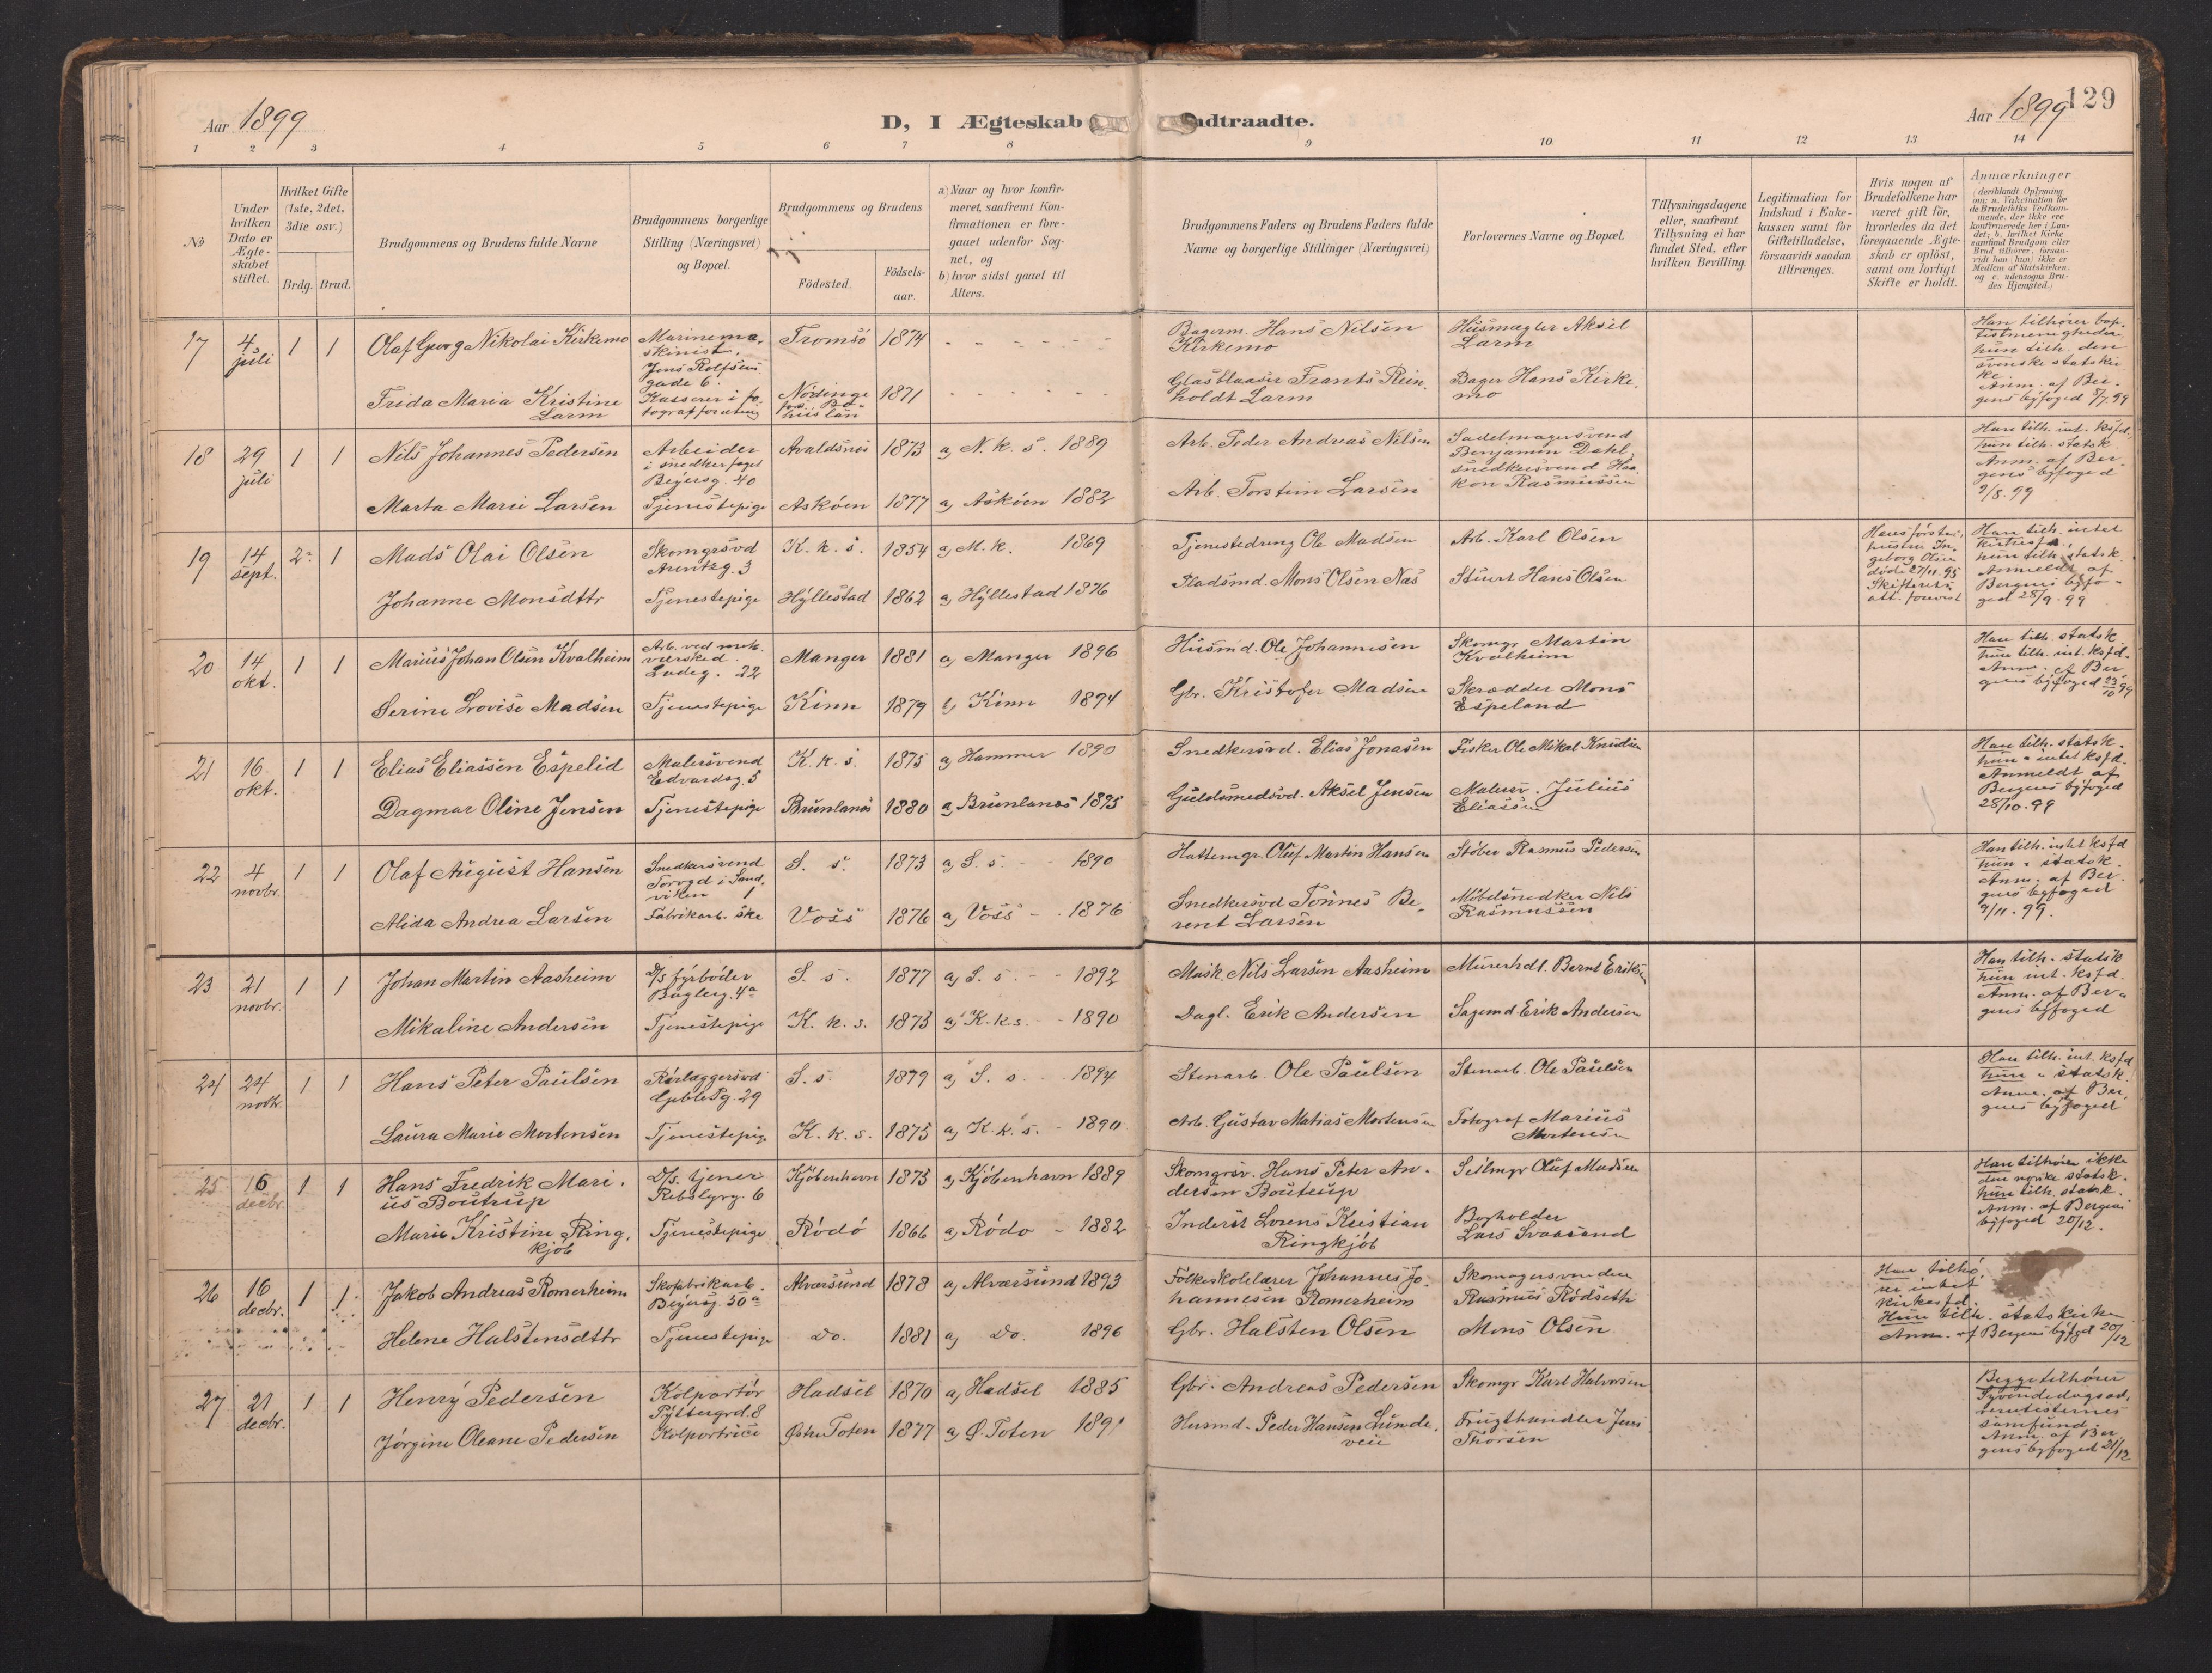 Aar 1899
D, I Ægteskab
ndtraadte.
Aar 1899
129
1 2 3 4 5 6 7 8 9 10 11 12 13 14
No
Under hvilken Dato er Ægteskabet stiftet.
Hvilket Gifte (1ste, 2det, 3die osv.)
Brdg. Brud.
Brudgommens og Brudens fulde Navne
Brudgommens borgerlige Stilling (Næringsvei) og Bopæl.
Brudgommens og Brudens
Födested.
Födsels-aar.
a) Naar og hvor konfirmeret, saafremt Konfirmationen er foregaaet udenfor Sognet, og
b) hvor sidst gaaet til Alters.
Brudgommens Faders og Brudens Faders fulde Navne og borgerlige Stillinger (Næringsvei)
Forlovernes Navne og Bopæl.
Tillysningsdagene eller, saafremt Tillysning ei har fundet Sted, efter hvilken Bevilling.
Legitimation for Indskud i Enkekassen samt for Giftetilladelse, forsaavidt saadan tiltrænges.
Hvis nogen af Brudefolkene har været gift för, hvorledes da det foregaaende Ægteskab er oplöst, samt om lovligt Skifte er holdt.
Anmærkninger
(deriblandt Oplysning om: a. Vakcination for de Brudefolks Vedkommende, der ikke ere konfirmerede her i Landet; b. hvilket Kirkesamfund Brudgom eller Brud tilhörer, forsaavidt han (hun) ikke er Medlem af Statskirken. og c. udensogns Brudes Hjemsted.)
17 4 juli 1 1 Olaf Georg Nikolai Kirkemo Marinemaskinist. Jens Rolfsens gade 6. Tromsö 1874 Bagerm. Hans Nilsen Kirkemo Husmægler Aksel Larm
Frida Maria Kristine Larm Kasserer i fotografforretning Nödinge 1871 Glasblaaser Frants Reinholdt Larm Bager Hans Kirkemo
Han tilhører baptistmenigheden hun tilh. den svenske statskirke. Anm. af Bergens byfoged 8/7.99
18 29 juli 1 1 Nils Johannes Pedersen Arbeider i snedkerfaget Beyersg. 40 Avaldsnes 1873 a) N. k. s. 1889 Arb. Peder Andreas Nilsen Sadelmagersvend Benjamin Dahl,
Marta Marie Larsen Tjenestepige Asköen 1877 a) Asköen 1882 Arb. Torstein Larsen snedkersvend Haakon Rasmussen
Han tilh. int. ksfd. hun tilh. statsk. Anm. af Bergens byfoged 9/8.99
19 14 sept. 2. 1 Mads Olai Olsen Skomgrsvd Arentzg. 3 K. k. s. 1854 a) M. k. 1869 Tjenestedreng Ole Madsen Arb. Karl Olsen
Johanne Monsdttr Tjenestepige Hyllestad 1862 a) Hyllestad 1876 Pladsmd. Mons Olsen Næs Stuert Hans Olsen
Hans første hustru Ingeborg Olsen døde 27/11.95 Skifterets att. forevist
Han tilh. intet kirkesfd., hun tilh. statsk. Anmeldt af Bergens byfoged 28/9.99
20 14 okt. 1 1 Marius Johan Olsen Kvalheim Arb. ved mek. verksted. Ladeg. 22 Manger 1881 a) Manger 1896 Husmd. Ole Johannesen Skomgr Martin Kvalheim
Serine Lovise Madsen Tjenestepige Kinn 1879 a) Kinn 1894 Gbr. Kristofer Madsen Skrædder Mons Espeland
Han tilh. statsk. hun tilh. int. ksfd. Anm. af Bergens byfoged 23/10 99
21 16. okt. 1 1 Elias Eliassen Espelid Malersvend Edvardsg. 5 K. k. s. 1875 a) Hammer 1890 Snedkersvd. Elias Jonasen Fisker Ole Mikal Knudsen
Dagmar Oline Jensen Tjenestepige Brunlanes 1880 a) Brunlanes 1895 Guldsmedsvd. Aksel Jensen Malersv. Julius Eliassen
Han tilh. statsk. hun " intet ksfd. Anmeldt af Bergens byfoged 28/10.99
22 4 novbr. 1 1 Olaf August Hansen Snedkersvend Torvgd i Sandviken 1 S. s. 1873 a) S. s. 1890 Hattemgr. Oluf Martin Hansen Støber Rasmus Pedersen
Alida Andrea Larsen Fabrikarb.ske Voss 1876 a) Voss 1876 Snedkersvd Tönnes Berent Larsen Møbelsnedker Nils Rasmussen
Han tilh. intet ksfd hun " statsk. Anm. af Bergens byfoged 9/11.99.
23 21 novbr. 1 1 Johan Martin Aasheim D/s fyrbøder Baglerg. 4a S. s. 1877 a) S. s 1892 Mask. Nils Larsen Aasheim Murerhdl. Bernt Eriksen
Mikaline Andersen Tjenestepige K. k. s. 1873 a) K.k.s. 1890 Dagl. Erik Andersen Sagemd. Erik Andersen
Han tilh. statsk hun int. ksfd. Anm. af Bergens byfoged
24 24 novbr. 1 1 Hans Peter Paulsen Rørlæggersvd 29 S. s. 1879 a) S. s. 1894 Stenarb. Ole Paulsen Stenarb. Ole Paulsen
Laura Marie Mortensen Tjenestepige K. k. s. 1875 a) K. k. s. 1890 Arb. Gustav Matias Mortensen Fotograf Marius Mortensen
Han tilh. int. ksfd hun " statsk. Anm. af Bergens byfoged
25 16 decbr. 1 1 Hans Fredrik Marius Boutrup D/s. tjener 6 Kjöbenhavn 1873 a) Kjöbenhavn 1889 Skomgrsv. Hans Peter Andersen Boutrup Seilmgr Oluf Madsen
Marie Kristine Ringkjöb Tjenestepige Rödö 1866 a) Rödö 1882 Inderst Lorens Kristian Ringkjöb Bogholder Lars Svaasand
Han tilhører ikke den norske statsk. hun tilh. statsk. Anm. af Bergens byfoged 20/12.
26 16 decbr. 1 1 Jakob Andreas Romerheim Skofabrikarb. Beyersg. 50a Alværsund 1878 a) Alværsund 1893 Folkeskolelærer Johannes Johannesen Romerheim Skomagersvendene Rasmus Rödseth
Helene Halstensdttr Tjenestepige do. 1881 a) do. 1896 Gbr. Halsten Olsen Mons Olsen
Han tilhører intet kirkesfd. Hun tilh. statskirken Anm. af Bergens byfgd 20/12
27 21 decbr. 1 1 Henry Pedersen Kolportör Pyttergrd. 8 Hadsel 1870 a) Hadsel 1885 Gbr. Andreas Pedersen Skomgr Karl Halvorsen
Jörgine Oleane Pedersen Kolportrice Østre Toten 1877 a) Ø. Toten 1891 Husmd. Peder Hansen Lundeveie Frugthandler Jens Thorsen
Begge tilhører Syvendedagsadventisternes samfund. Anm. af Bergens byfoged 21/12